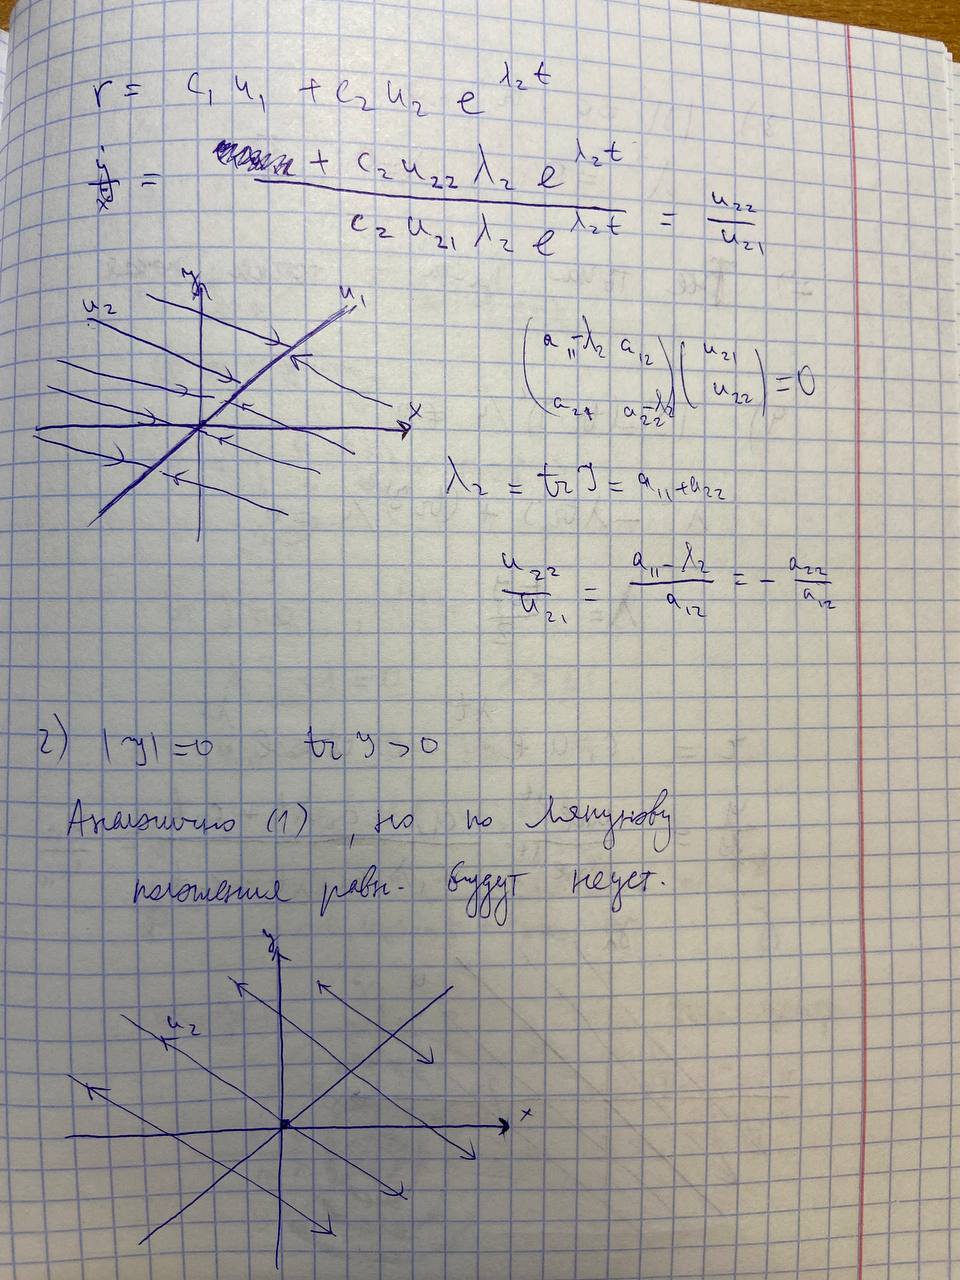 r = c₁ u₁ + c₂ u₂ e^{λ₂t}
ẏ/ẋ = + c₂ u₂₂ λ₂ e^{λ₂t} / c₂ u₂₁ λ₂ e^{λ₂t} = u₂₂/u₂₁
y
u₁
u₂
x
(a₁₁-λ₂ a₁₂
a₂₁ a₂₂-λ₂) (u₂₁
u₂₂) = 0
λ₂ = tr J = a₁₁ + a₂₂
u₂₂/u₂₁ = (a₁₁ - λ₂)/a₁₂ = - a₂₂/a₁₂
2) |J| = 0 tr J > 0
Аналогично (1), но по Ляпунову
положения равн. будут неуст.
y
u₂
x